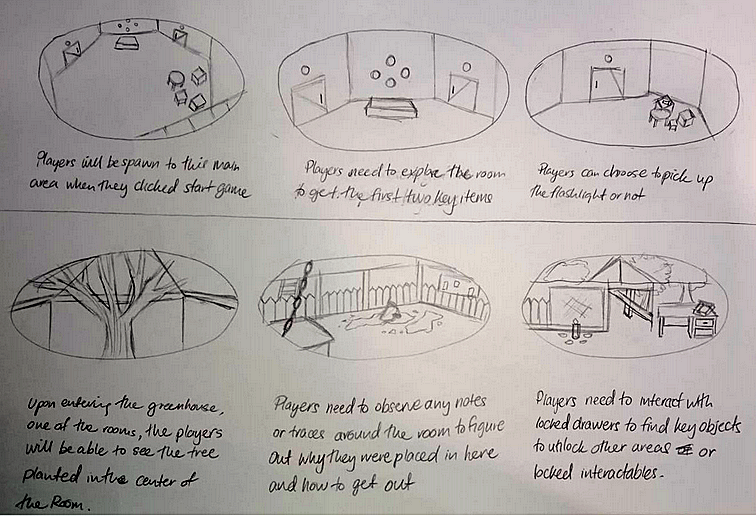 Players will be spawn to this main
area when they clicked start game
Players need to explore the room
to get the first two key items
Players can choose to pick up
the flashlight or not
Upon entering the greenhouse,
one of the rooms, the players
will be able to see the tree
planted in the center of
the Room.
Players need to observe any notes
or traces around the room to figure
out why they were placed in here
and how to get out
Players need to interact with
locked drawers to find key objects
to unlock other areas or
locked interactables.